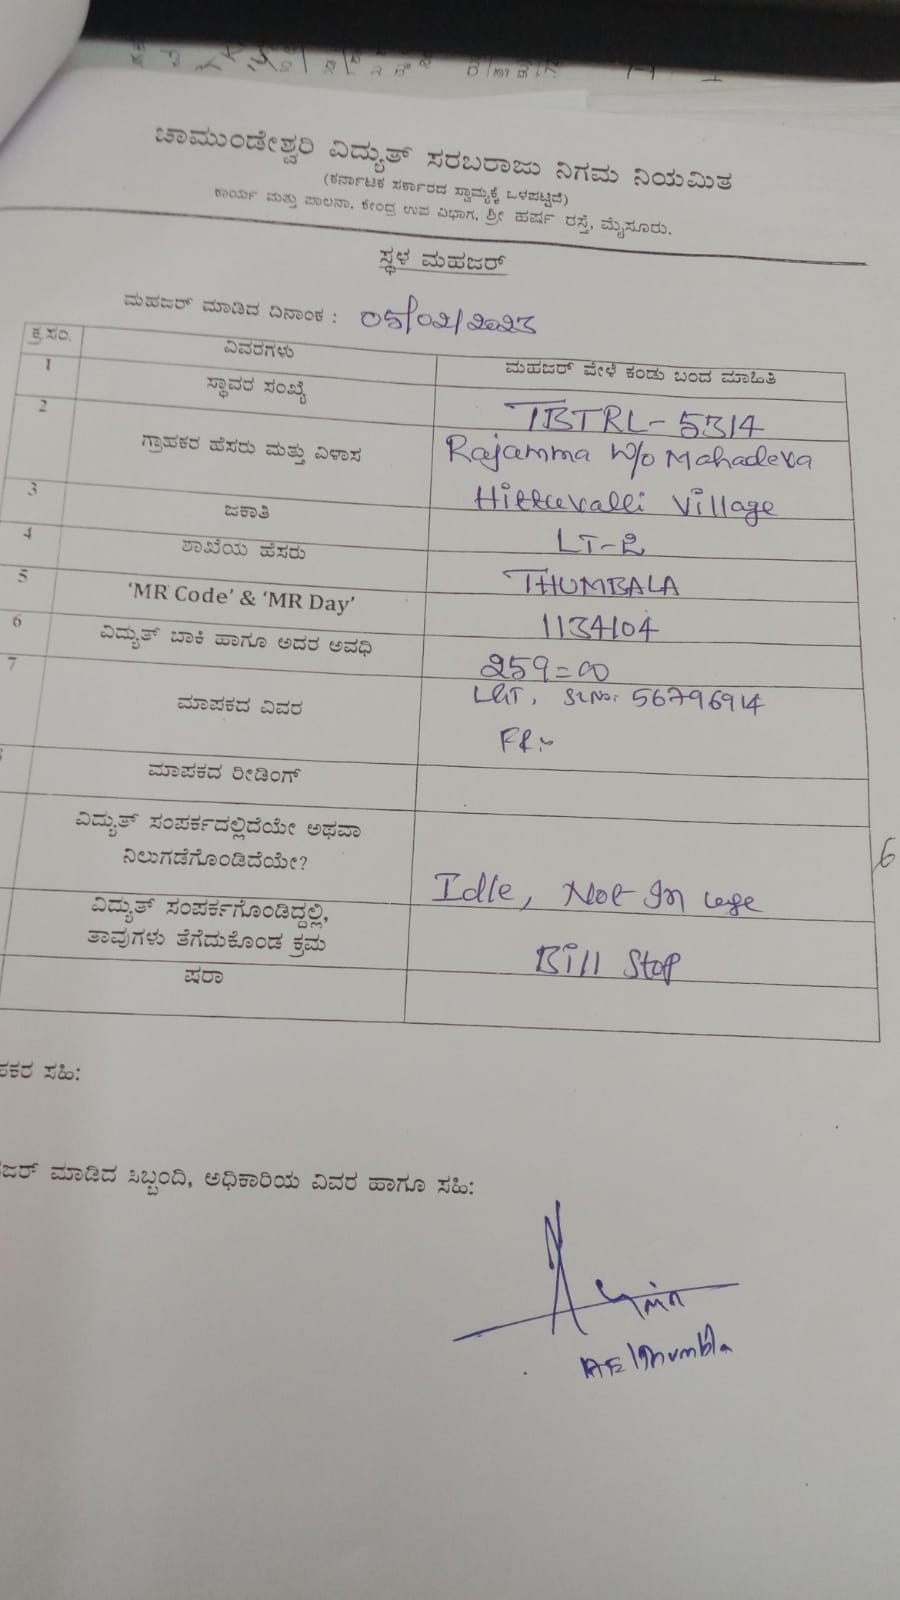 ಚಾಮುಂಡೇಶ್ವರಿ ವಿದ್ಯುತ್ ಸರಬರಾಜು ನಿಗಮ ನಿಯಮಿತ
(ಕರ್ನಾಟಕ ಸರ್ಕಾರದ ಸ್ವಾಮ್ಯಕ್ಕೆ ಒಳಪಟ್ಟಿದೆ)
ಕಾರ್ಯ ಮತ್ತು ಪಾಲನಾ, ಕೇಂದ್ರ ಉಪ ವಿಭಾಗ, ಶ್ರೀ ಹರ್ಷ ರಸ್ತೆ, ಮೈಸೂರು.
ಸ್ಥಳ ಮಹಜರ್
ಮಹಜರ್ ಮಾಡಿದ ದಿನಾಂಕ : 05/02/2023
ಕ್ರ.ಸಂ. ವಿವರಗಳು ಮಹಜರ್ ವೇಳೆ ಕಂಡು ಬಂದ ಮಾಹಿತಿ
1 ಸ್ಥಾವರ ಸಂಖ್ಯೆ TBTRL-5314
2 ಗ್ರಾಹಕರ ಹೆಸರು ಮತ್ತು ವಿಳಾಸ Rajamma W/o Mahadeva
Hittuvalli Village
3 ಜಕಾತಿ LT-2
4 ಶಾಖೆಯ ಹೆಸರು THUMBALA
5 'MR Code' & 'MR Day' 1134104
6 ವಿದ್ಯುತ್ ಬಾಕಿ ಹಾಗೂ ಅದರ ಅವಧಿ 259=00
7 ಮಾಪಕದ ವಿವರ L&T, Sl.No: 56796914
FR:-
ಮಾಪಕದ ರೀಡಿಂಗ್
ವಿದ್ಯುತ್ ಸಂಪರ್ಕದಲ್ಲಿದೆಯೇ ಅಥವಾ
ನಿಲುಗಡೆಗೊಂಡಿದೆಯೇ? Idle, Not In use
ವಿದ್ಯುತ್ ಸಂಪರ್ಕಗೊಂಡಿದ್ದಲ್ಲಿ,
ತಾವುಗಳು ತೆಗೆದುಕೊಂಡ ಕ್ರಮ Bill Stop
ಷರಾ
6
ಹಕರ ಸಹಿ:
ಜರ್ ಮಾಡಿದ ಸಿಬ್ಬಂದಿ, ಅಧಿಕಾರಿಯ ವಿವರ ಹಾಗೂ ಸಹಿ:
AE/Thumbla